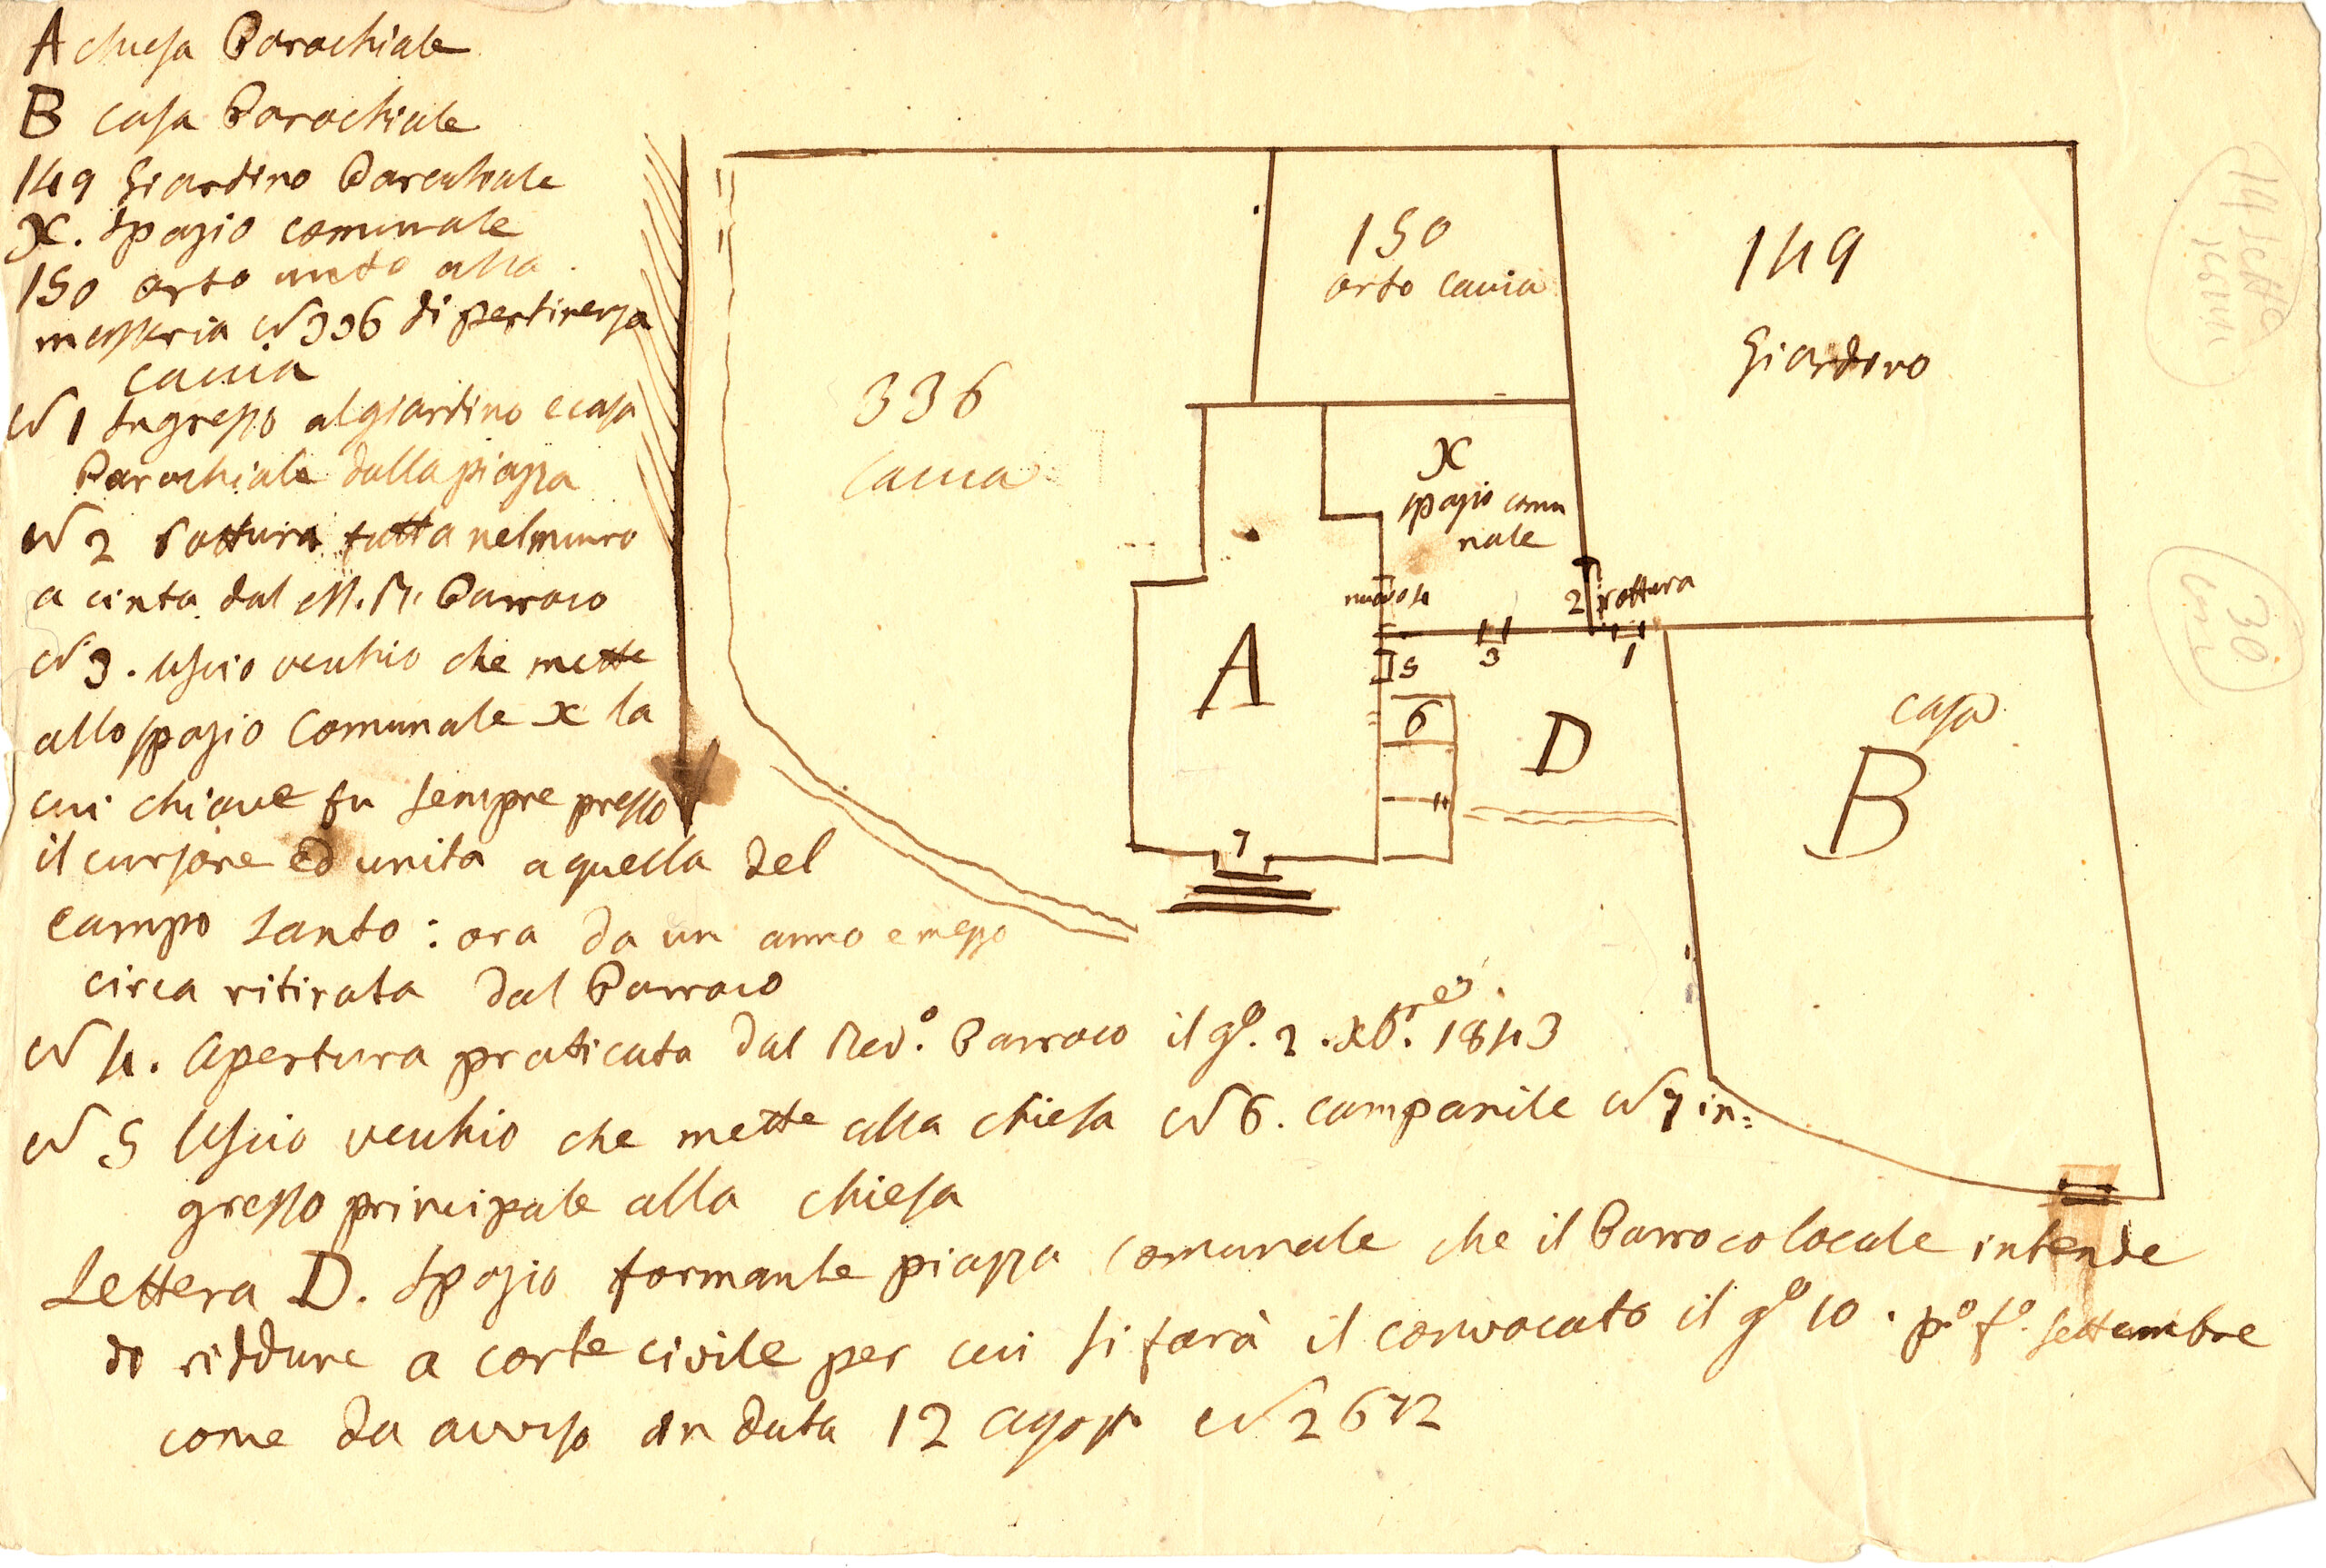 A chiesa Parochiale
B casa Parochiale
149 Giardino Parochiale
X. Spazio comunale
150 orto unito alla
masseria N 336 di pertinenza
Caccia
N 1 Ingresso al giardino e casa
Parochiale dalla piazza
N 2 rottura fatta nel muro
a cinta dal M. R. Parroco
N 3. Uscio vecchio che mette
allo spazio Comunale x la
cui chiave fu sempre presso
il cursore ed unita a quella del
campo santo : ora da un anno e mezzo
circa ritirata dal Parroco
N 4. Apertura praticata dal Rev.º Parroco il gº. 2. xbre. 1843
N 5 Uscio vecchio che mette alla chiesa N 6. campanile N 7 in=
gresso principale alla chiesa
Lettera D. Spazio formante piazza Comunale che il Parroco locale intende
di riddure a corte civile per cui si farà il convocato il gº 10. pº fº. settembre
come da avviso in data 12 agosto N 2672
150
orto Caccia
149
Giardino
336
Caccia
X
spazio comu
nale
4
2 rottura
3
1
5
A
6
D
casa
B
7
30